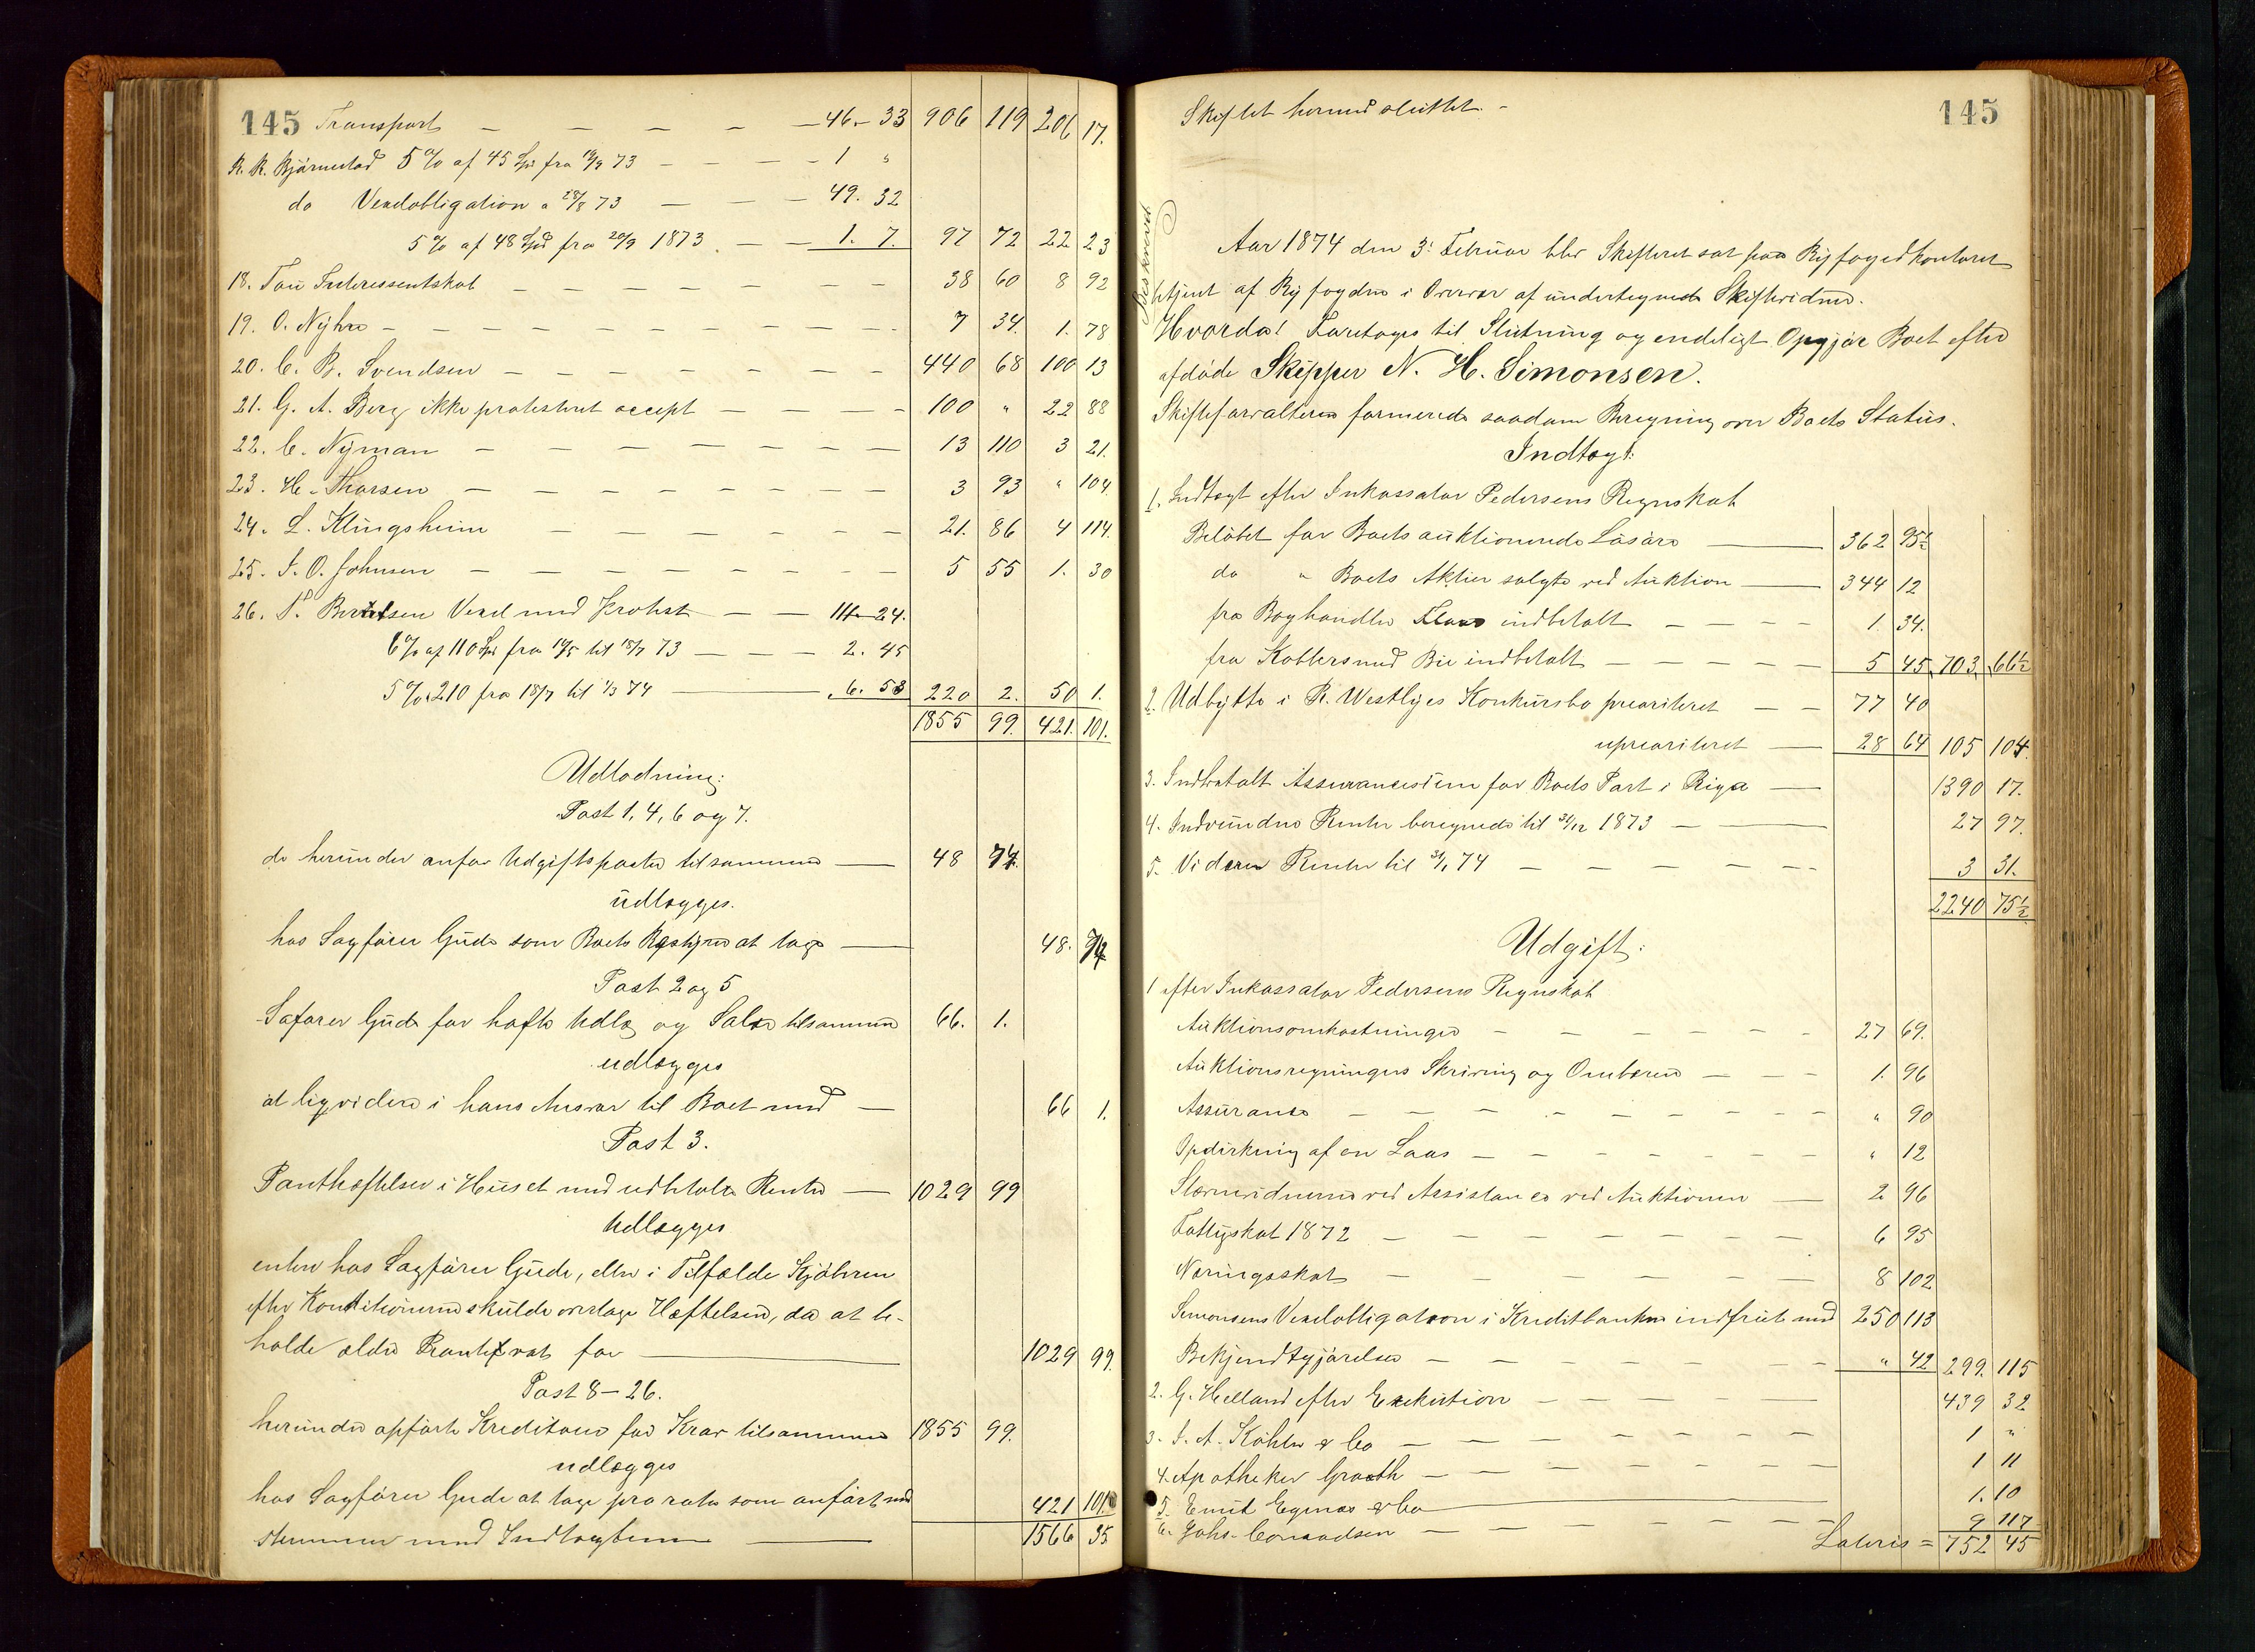 145 Transport — — — — — 46 - 33 906 119 206 17.
R. R. Bjørnestad 5 % af 45 Spd fra 19/9 73 — — — — 1 "
do Vexelobligation a 28/8 73 — — — 49. 32
5 % af 48 Spd fra 20/9 1873 — — 1. 7. 97 72 22 23
18. Tou Interessentskab — — — — — — — 38 60 8 92
19. O. Nyhre — — — — — — — — 7 34. 1. 78
20. C. B. Svendsen — — — — — — — 440 68 100 13
21. G. A. Berg ikke protesteret accept — — — — 100 " 22 88
22. C. Nyman — — — — — — — 13 110 3 21.
23. H. Thorsen — — — — — — — — 3 93 " 104.
24. L. Klungsheim — — — — — — 21. 86 4 114.
25. I. O. Johnsen — — — — — — — — 5 55 1. 30
26. P. Berentsen Vexel med Probst — — 111 - 24.
6 % af 110 Spd fra 14/5 til 18/7 73 — — — 2. 45
5 % a 210 fra 18/7 til 1/3 74 — 6. 53 220 2. 50 1.
1855 99. 421. 101.
Udlodning:
Post 1, 4, 6 og 7.
de herunder anførte Udgiftsposter tilsammen — 48 74.
udlægges.
hos Sagfører Gude som Boets Bestyrer at tage — 48. 74
Post 2 og 5
Safører Gude for hafte Udlæg og Salær tilsammen 66. 1.
udlægges
at liqvidere i hans Ansvar til Boet med — 66 1.
Post 3.
Panthæftelser i Huset med udbetalte Renter — 1029 99
Udlægges
enten hos Sagfører Gude, eller i Tilfælde Kjøberen
efter Konditionerne skulde overtage Hæftelsen, da at be-
holde ældre Prioritet for — 1029 99.
Post 8 — 26.
herunder opførte Kreditorer for Krav tilsammen 1855 99.
udlægges
hos Sagfører Gude at tage pro rata som anført med 421 101.
stemmer med Indtægten — 1566 35
Skiftet hermed sluttet. -
145
Beskrevet
Aar 1874 den 3' Februar blev Skifteret sat paa Byfogedkontoret
betjent af Byfogden i Overvær af undertegnede Skiftevidner.
Hvorda! Foretoges til Slutning og endeligt Opgjør Boet efter
afdøde Skipper N. H. Simonsen.
Skifteforvalteren formerede saadan Beregning over Boets Status.
Indtægt:
1. Indtægt efter Inkassator Pedersens Regnskab
Beløbet for Boets auktionerede Løsøre — 362 95½
do " Boets Aktier solgte ved Auktion — 344 12
fra Boghandler Floor indbetalt — — — — 1. 34.
fra Kobbersmed Bie indbetalt — — — — — 5 45 703. 66½
2. Udbytte i R. Westlyes Konkursbo prioriteret — — 77 40
uprioriteret — 28 64 105 104.
3. Indbetalt Assurancesum for Boets Part i Riga — 1390 17.
4. Indvundne Renter beregnede til 31/12 1873 — — 27 97.
5. Videre Renter til 31/1 74 — — — — — 3 31.
2240 75½
Udgift:
1 efter Inkassator Pedersens Regnskab
Auktionsomkostninger — — — — — — 27 69.
Auktionsregningens Skrivning og Ombæren — — — 1. 96
Assurance — — — — — — — — " 90
Opdirkning af en Laas — — — — — — — " 12
Stævnevidnerne ved Assistance ved Auktionen — 2 96
Fattigskat 1872 — — — — — — — 6 95
Næringsskat — — — — — — — 8 102
Simonsens Vexelobligation i Kreditbanken indfriet med 250 113
Bekjendtgjørelser — — — — — — — " 42 299. 115
2. G. Helland efter Exekution — — — — 439 32
3. I. A. Køhler & Co — — — — — — — 1 "
4. Apotheker Grooth — — — — — — — 1 11
5. Emil Egenæs & Co — 1. 10
6. Johs. Conradsen — — — — — — — 9 117
Lateris = 752 45